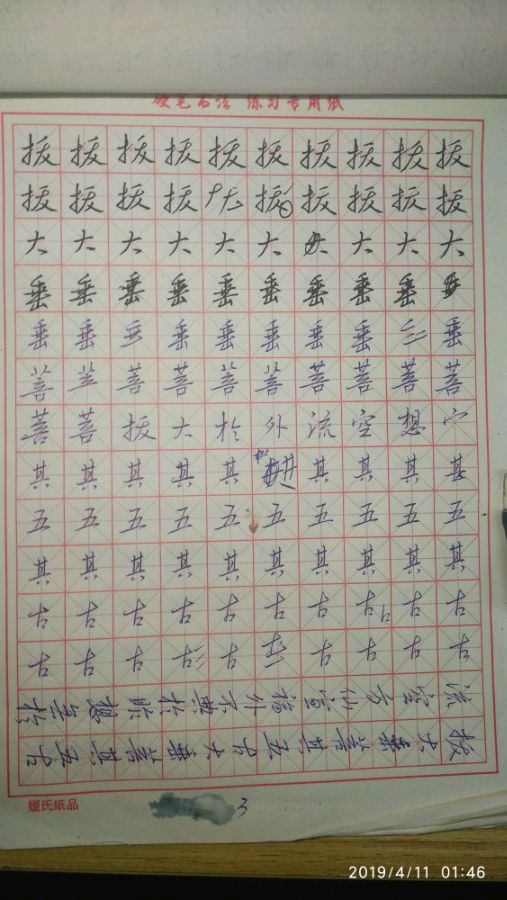 硬笔书法 练习专用纸
拔 拔 拔 拔 拔 拔 拔 拔 拔 拔
拔 拔 拔 拔 拔 拔 拔 拔 拔
大 大 大 大 大 大 大 大 大 大
垂 垂 垂 垂 垂 垂 垂 垂 垂
垂 垂 垂 垂 垂 垂 垂 垂
菩 菩 菩 菩 菩 菩 菩 菩 菩
菩 菩 拔 大 於 外 流 空 想
其 其 其 其 其 其 其 其
五 五 五 五 五 五 五 五 五 五
其 其 其 其 其 其 其 其 其 其
古 古 古 古 古 古 古 古 古 古
古 古 古 古 古 古 古 古
流 空 方 仙 宫 外 不 典 於 想 於
拔 大 垂 菩 其 五 古 大 垂 菩 其 五 古
媛氏纸品
3
2019/4/11 01:46